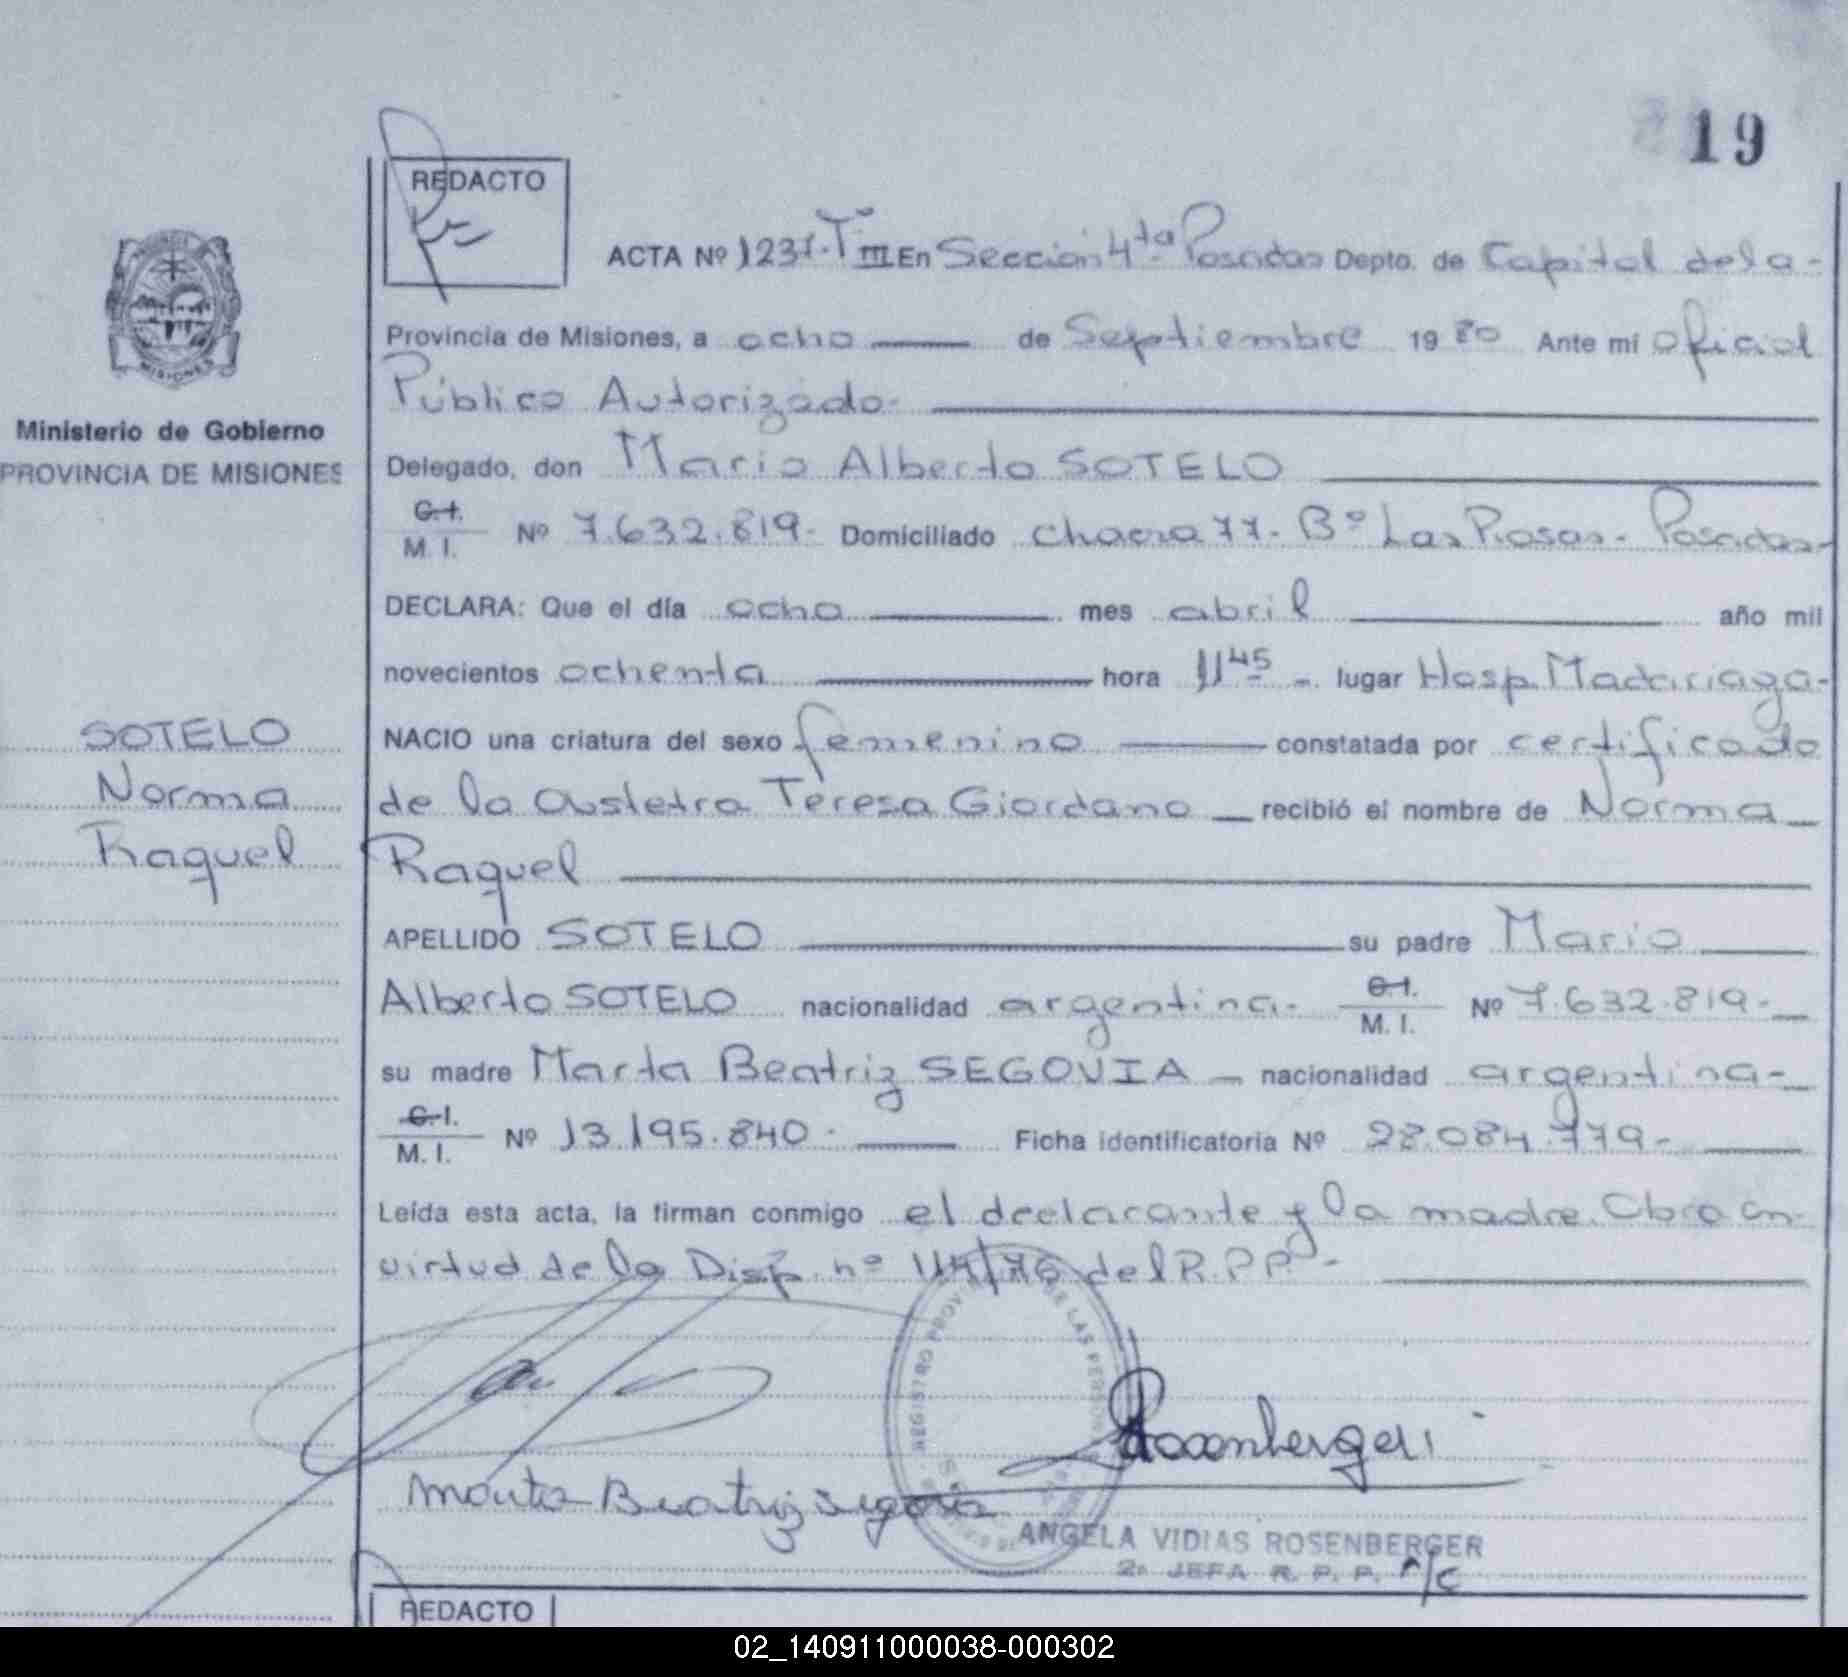 19
REDACTO
ACTA Nº 1231. T III En Sección 4ta Posadas Depto. de Capital de la -
Provincia de Misiones, a ocho de Septiembre 1980 Ante mí Oficial
Público Autorizado-
Delegado, don Mario Alberto SOTELO
C.I. M. I. Nº 7.632.819- Domiciliado Chacra 77- Bº Las Rosas- Posadas-
DECLARA: Que el día ocho mes abril año mil
novecientos ochenta hora 11 45 - lugar Hosp. Madariaga-
NACIO una criatura del sexo femenino constatada por certificado
de la Obstetra Teresa Giordano recibió el nombre de Norma
Raquel
APELLIDO SOTELO su padre Mario
Alberto SOTELO nacionalidad argentina- C.I. M. I. Nº 7.632.819-
su madre Marta Beatriz SEGOVIA nacionalidad argentina-
C.I. M. I. Nº 13.195.840- Ficha identificatoria Nº 28.084.779-
Leída esta acta, la firman conmigo el declarante y la madre. Obro en
virtud de la Disp. nº 114/76 del R.P.P-
Ministerio de Gobierno
PROVINCIA DE MISIONES
SOTELO
Norma
Raquel
Marta Beatriz Segovia
ANGELA VIDIAS ROSENBERGER
2a JEFA R. P. P. A/C
REDACTO
02_140911000038-000302